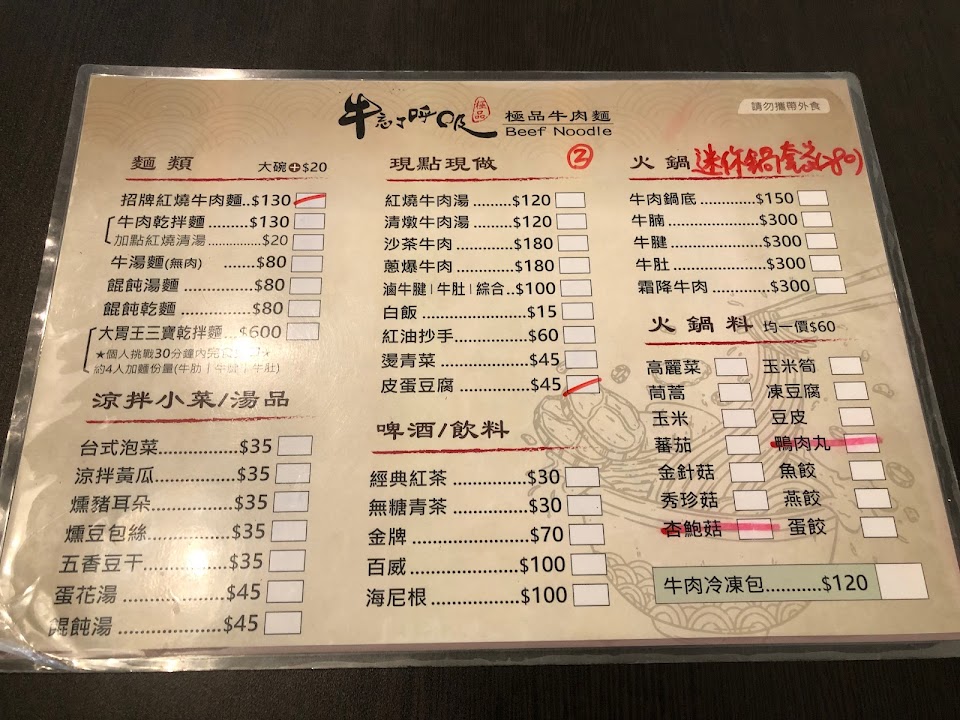 牛忘了呼吸
極品
極品牛肉麵
Beef Noodle
請勿攜帶外食
麵類 大碗+$20
招牌紅燒牛肉麵..$130
牛肉乾拌麵........$130
加點紅燒清湯..............$20
牛湯麵(無肉) .......$80
餛飩湯麵...............$80
餛飩乾麵...............$80
大胃王三寶乾拌麵...$600
★個人挑戰30分鐘內完
約4人加麵份量(牛肋|牛腱|牛肚)
涼拌小菜/湯品
台式泡菜..................$35
涼拌黃瓜..................$35
燻豬耳朵..................$35
燻豆包絲..................$35
五香豆干..................$35
蛋花湯....................$45
餛飩湯....................$45
現點現做 ②
紅燒牛肉湯.........$120
清燉牛肉湯.........$120
沙茶牛肉............$180
蔥爆牛肉............$180
滷牛腱|牛肚|綜合..$100
白飯....................$15
紅油抄手..............$60
燙青菜.................$45
皮蛋豆腐..............$45
啤酒/飲料
經典紅茶................$30
無糖青茶................$30
金牌......................$70
百威......................$100
海尼根...................$100
火鍋 迷你鍋套餐(280)
牛肉鍋底..............$150
牛腩....................$300
牛腱....................$300
牛肚....................$300
霜降牛肉..............$300
火鍋料 均一價$60
高麗菜 玉米筍
茼蒿 凍豆腐
玉米 豆皮
蕃茄 鴨肉丸
金針菇 魚餃
秀珍菇 燕餃
杏鮑菇 蛋餃
牛肉冷凍包...........$120